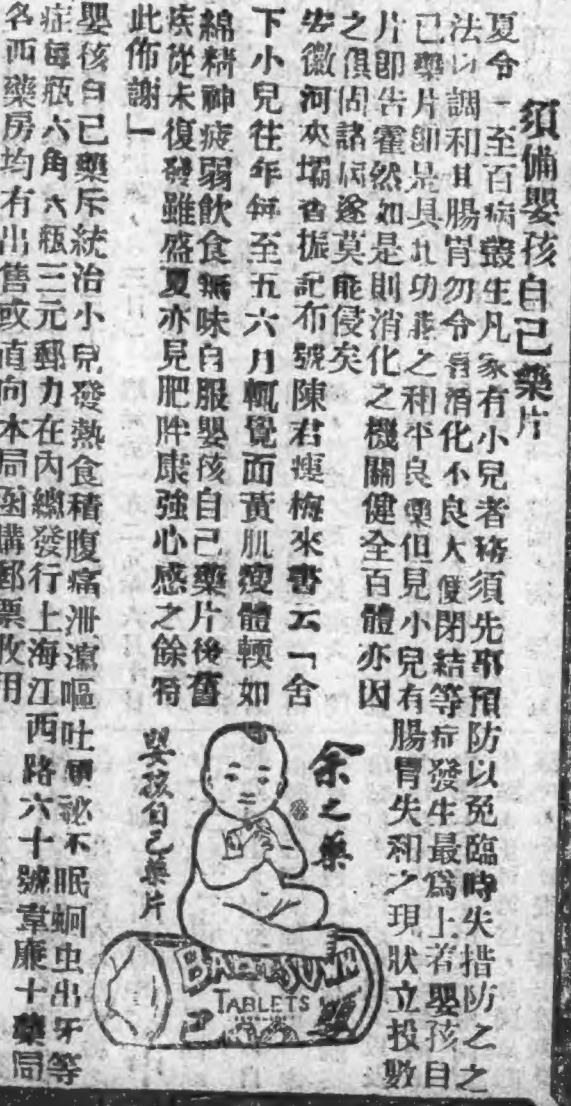 須備嬰孩自己藥片
夏令一至百病叢生凡家有小兒者務須先事預防以免臨時失措防之之
法以調和其腸胃勿令有消化不良大便閉結等症發生最為上着嬰孩自
己藥片卽是具此功能之和平良藥但見小兒有腸胃失和之現狀立投數
片卽告霍然如是則消化之機關健全百體亦因
之俱固諸病遂莫能侵矣
安徽河夾壩省振記布號陳君瘦梅來書云「舍
下小兒往年每至五六月輒覺面黃肌瘦體輭如
綿精神疲弱飲食無味自服嬰孩自己藥片後舊
疾從未復發雖盛夏亦見肥胖康強心感之餘特
此佈謝」
嬰孩自己藥片統治小兒發熱食積腹痛泄瀉嘔吐便祕不眠蛔虫出牙等
症每瓶六角六瓶三元郵力在內總發行上海江西路六十號韋廉士藥局
各西藥房均有出售或直向本局函購郵票收用
余之藥
嬰孩自己藥片
BABY'S OWN
TABLETS
己
嬰